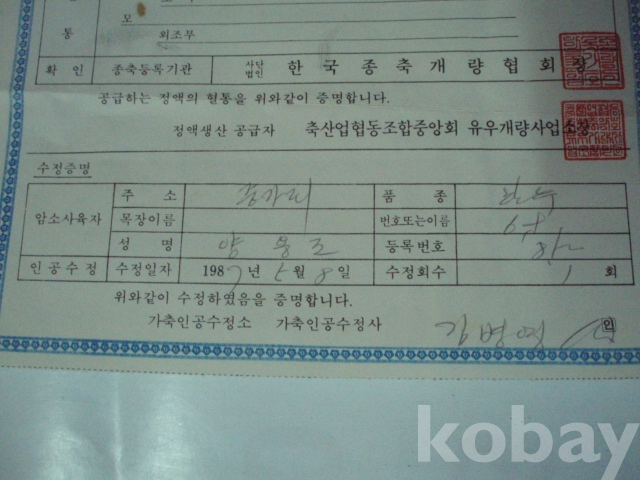 모
통 외조부
확 인 종축등록기관 사단법인 한 국 종 축 개 량 협 회 장
공급하는 정액의 혈통을 위와같이 증명합니다.
정액생산 공급자 축산업협동조합중앙회 유우개량사업소장
수정증명
암소사육자 주 소 품 종 한우
목장이름 번호또는이름
성 명 양 용 조 등록번호
인공수정 수정일자 1987년 5월 8일 수정회수 1 회
위와같이 수정하였음을 증명합니다.
가축인공수정소 가축인공수정사 김 병 인
kobay